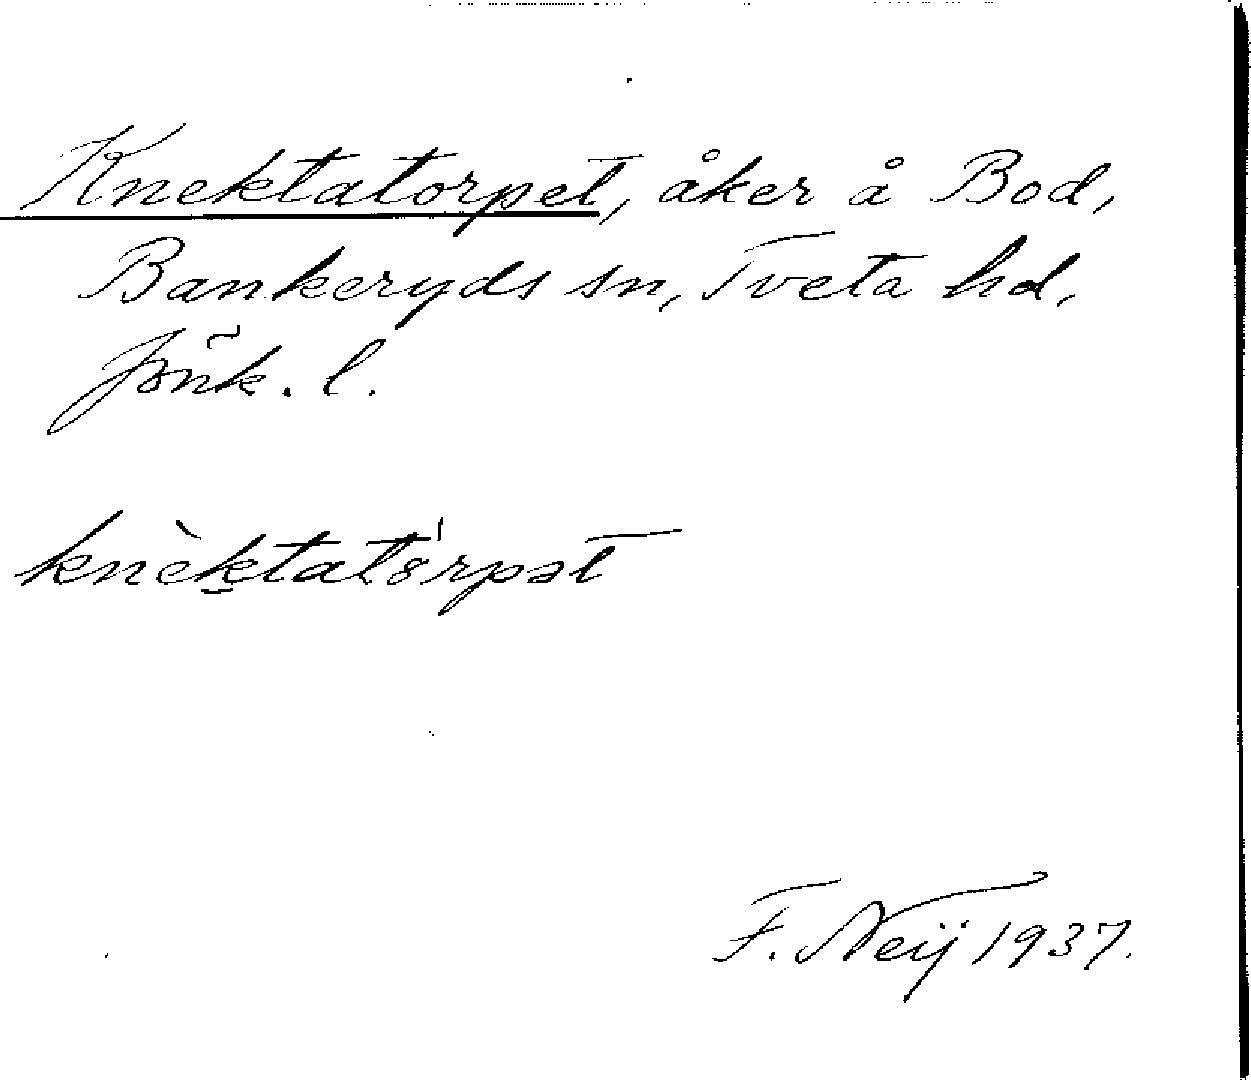 Knektatorpet, åker å Bod,
Bankeryds sn, Tveta hd,
Jönk. l.
knèk̮tatȯ́rpət
F. Neij 1937.